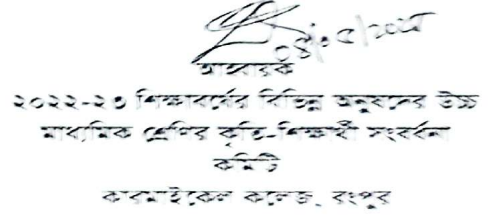 আহ্বায়ক
২০২২-২৩ শিক্ষাবর্ষের বিভিন্ন অনুষদের উচ্চ
মাধ্যমিক শ্রেণির কৃতি-শিক্ষার্থী সংবর্ধনা
কমিটি
কারমাইকেল কলেজ, রংপুর